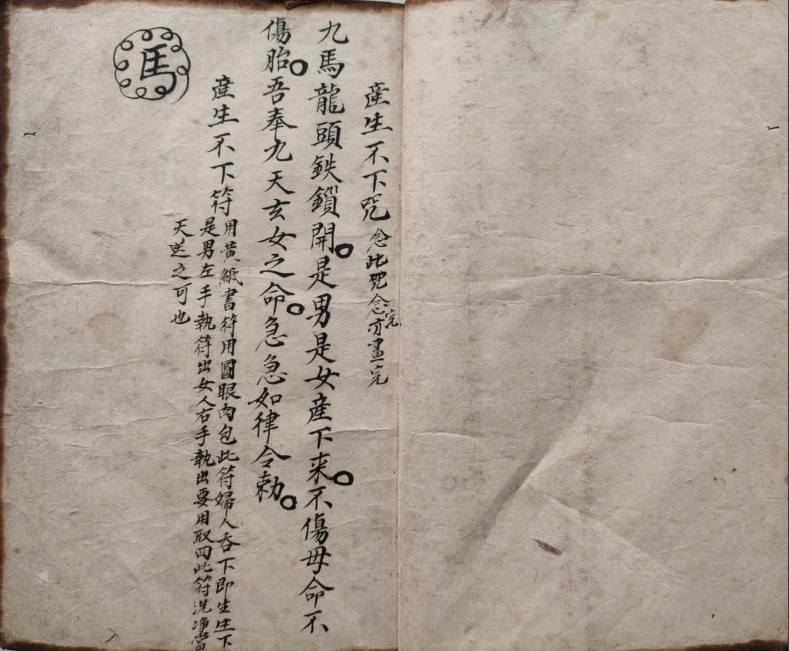 產生不下咒 念此咒念完亦畫完
九馬龍頭鉄鎖開是男是女産下来不傷毋命不
傷胎吾奉九天玄女之命急急如律令勅
産生不下符 用黃紙書符用圓眼肉包此符婦人吞下即生生下
是男左手執符出女人右手執出要用取回此符洗净當
天送之可也
馬